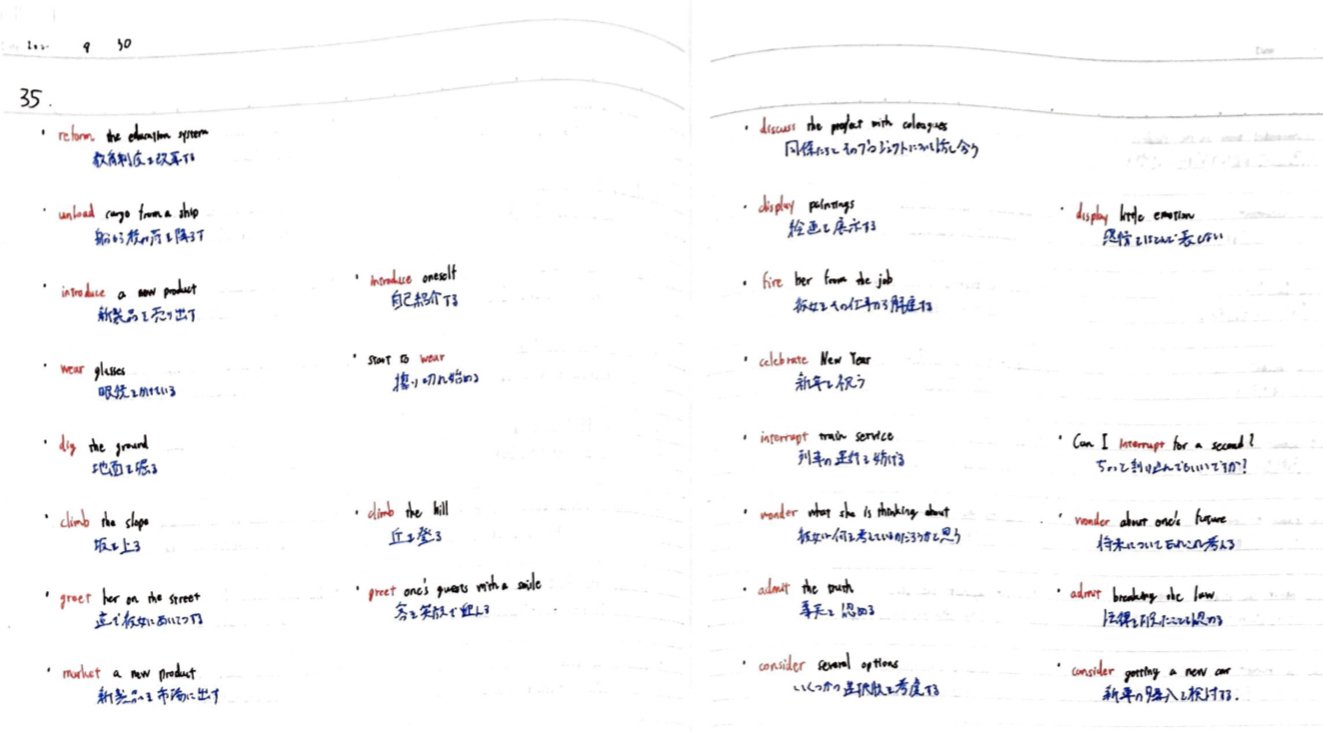 9 30
35.
・reform the education system
教育制度を改革する
・unload cargo from a ship
船から積み荷を降ろす
・introduce a new product
新製品を売り出す
・introduce oneself
自己紹介する
・wear glasses
眼鏡をかけている
・start to wear
擦り切れ始める
・dig the ground
地面を掘る
・climb the slope
坂を上る
・climb the hill
丘を登る
・greet her on the street
道で彼女にあいさつする
・greet one's guests with a smile
客を笑顔で迎える
・market a new product
新製品を市場に出す
・discuss the project with coleagues
同僚たちとそのプロジェクトについて話し合う
・display paintings
絵画を展示する
・display little emotion
感情をほとんど表さない
・fire her from the job
彼女をその仕事から解雇する
・celebrate New Year
新年を祝う
・interrupt train service
列車の運行を妨げる
・Can I interrupt for a second?
ちょっと割り込んでもいいですか?
・wonder what she is thinking about
彼女は何を考えているのだろうかと思う
・wonder about one's future
将来についてあれこれ考える
・admit the truth
事実を認める
・admit breaking the law
法律を犯したことを認める
・consider several options
いくつかの選択肢を考慮する
・consider getting a new car
新車の購入を検討する.